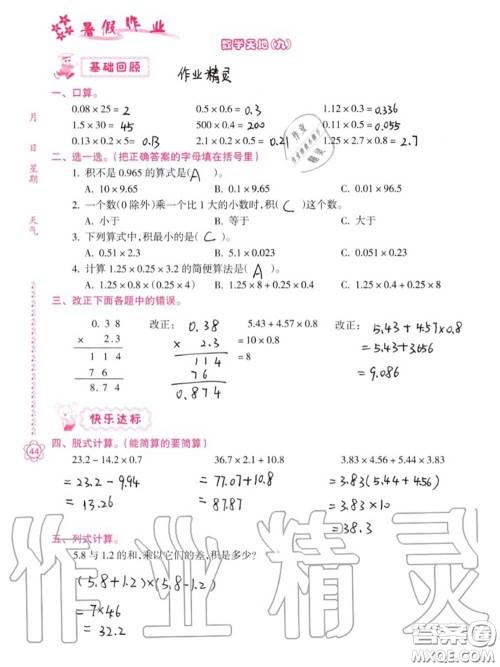 暑假作业
数学天地(九)
基础回顾 作业精灵
一、口算。
0.08×25= 2 0.5×0.6= 0.3 1.12×0.3= 0.336
1.5×30= 45 500×0.4= 200 0.11×0.5= 0.055
0.13×0.2×5= 0.13 2.1×0.2×0.5= 0.21 1.25×2.7×0.8= 2.7
二、选一选。(把正确答案的字母填在括号里)
1. 积不是 0.965 的算式是( A )。
A. 10×9.65 B. 0.1×9.65 C. 0.01×96.5
2. 一个数(0除外)乘一个比1大的小数时,积( C )这个数。
A. 小于 B. 等于 C. 大于
3. 下列算式中,积最小的是( C )。
A. 0.51×2.3 B. 5.1×0.023 C. 0.051×0.23
4. 计算 1.25×0.25×3.2 的简便算法是( A )。
A. 1.25×0.8×(0.25×4) B. 1.25×8+0.25×0.4 C. 1.25×0.4+0.25×8
三、改正下面各题中的错误。
0.38 改正: 0.38 5.43+4.57×0.8 改正: 5.43+4.57×0.8
× 2.3 × 2.3 =10×0.8 =5.43+3.656
1 1 4 114 =8 =9.086
7 6 76
8.7 4 0.874
快乐达标
四、脱式计算。(能简算的要简算)
23.2-14.2×0.7 36.7×2.1+10.8 3.83×4.56+5.44×3.83
=23.2-9.94 =77.07+10.8 =3.83(5.44+4.56)
=13.26 =87.87 =3.83×10
=38.3
五、列式计算。
5.8与1.2的和,乘以它们的差,积是多少?
(5.8+1.2)×(5.8-1.2)
=7×4.6
=32.2
月
日
星期
天气
44
作业精灵
答案圈